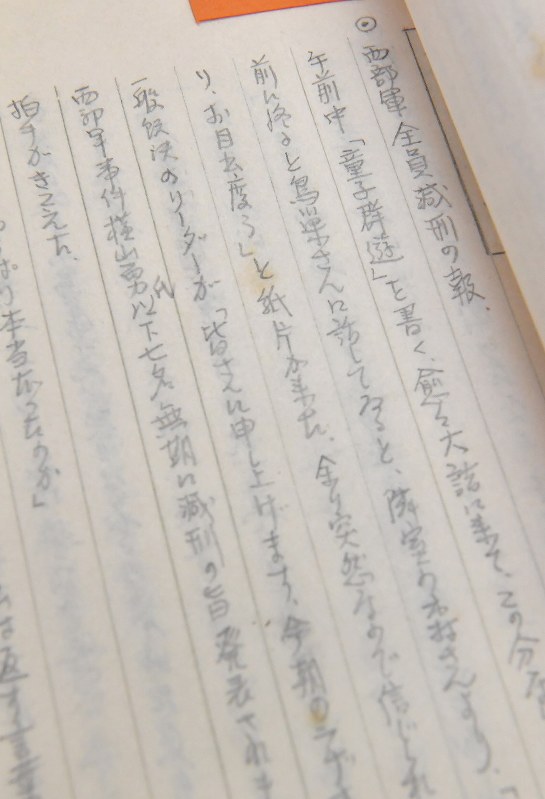 ◎西部軍全員減刑の報、
午前中「童子群遊」を書く、愈々大詰に来て、この分なら
前に終ると鳥巣さんに話してゐると、隣室の さんより、「
り、お目出度う」と紙片が来た、余り突然なので信じられ
一般餃決のリーダーが「皆さんに申し上げます、今朝のラヂオ
西部軍事件横山勇氏以下七名無期に減刑の旨発表されま
拍手がきこえた、
っぱり本当だったのか」
は返す言葉